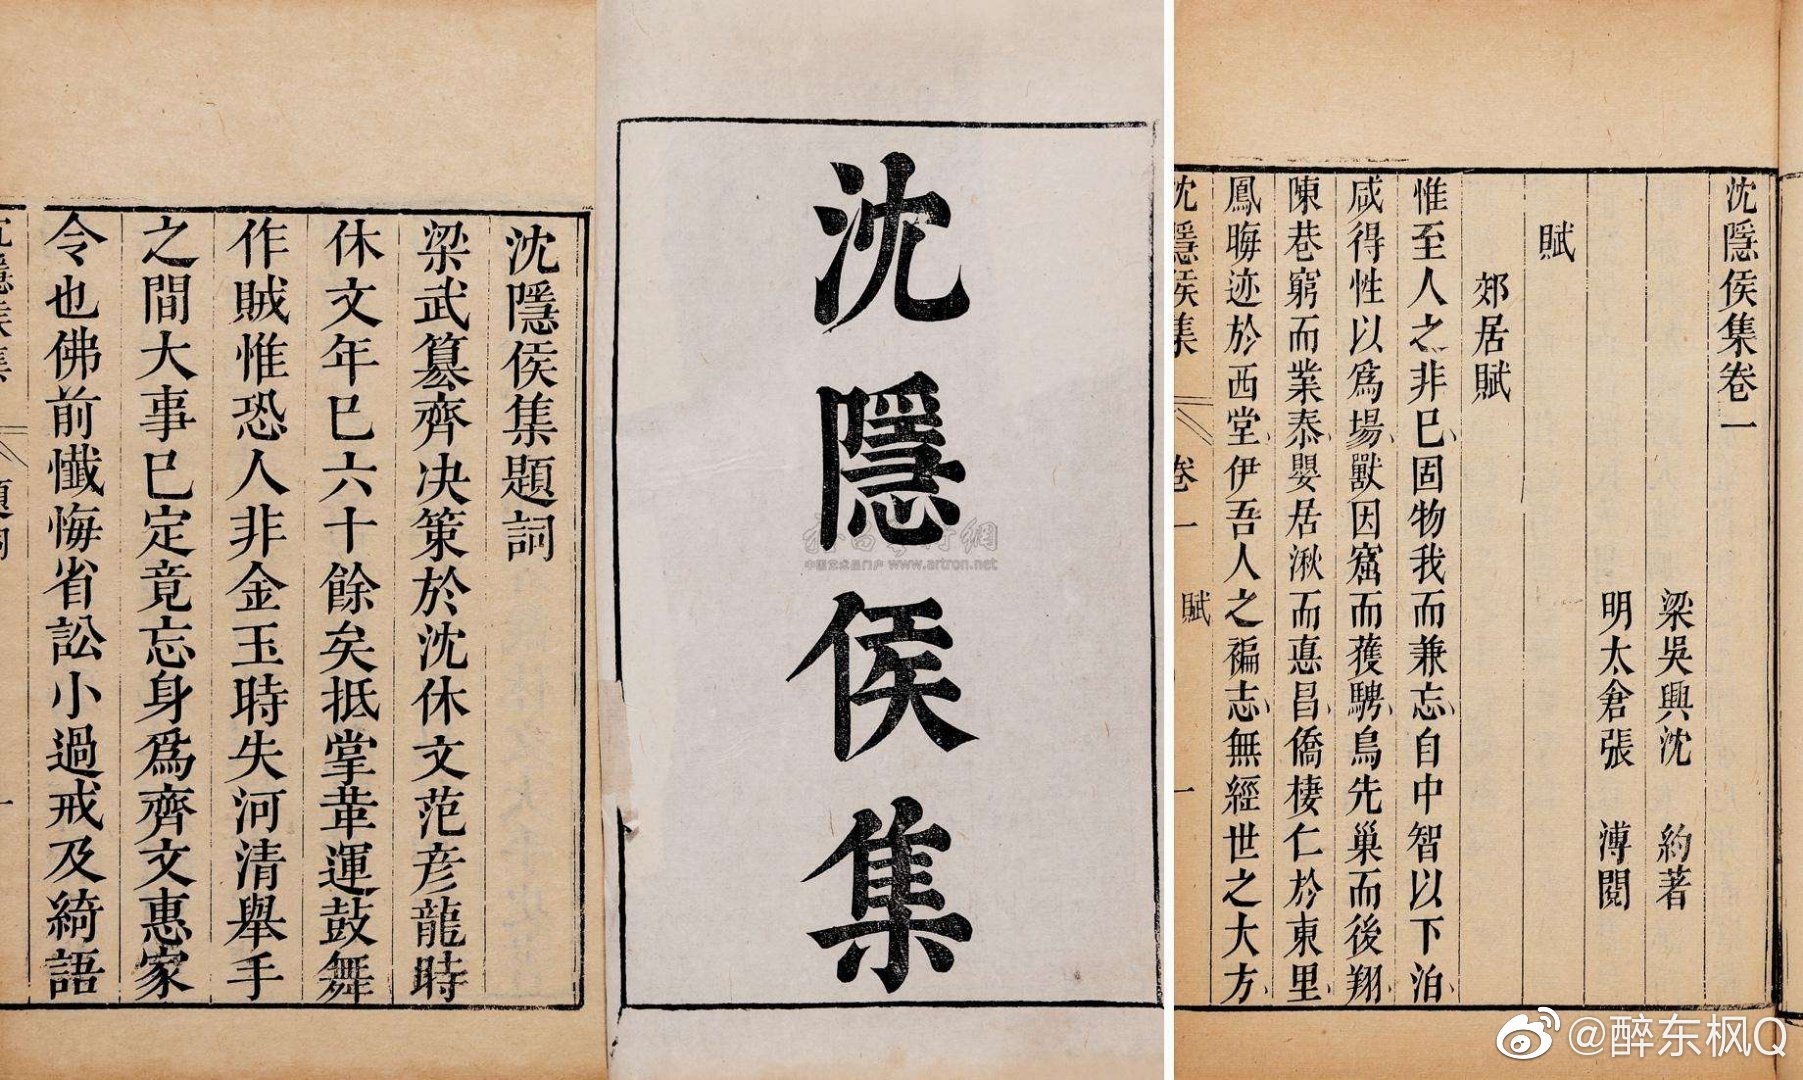 沈隱侯集題詞
梁武篡齊決策於沈休文范彥龍時
休文年已六十餘矣抵掌葦運鼓舞
作賊惟恐人非金玉時失河清舉手
之間大事已定竟忘身爲齊文惠家
令也佛前懺悔省訟小過戒及綺語
沈隱侯集
題詞
一
沈隱侯集
www.artron.net
沈隱侯集卷一
梁吳興沈 約著
明太倉張 溥閱
賦
郊居賦
惟至人之非已固物我而兼忘自中智以下洎
咸得性以爲場獸因窟而獲騁鳥先巢而後翔
陳巷窮而業泰嬰居湫而惪昌僑棲仁於東里
鳳晦迹於西堂伊吾人之褊志無經世之大方
沈隱侯集
卷一
賦
一
@醉东枫Q